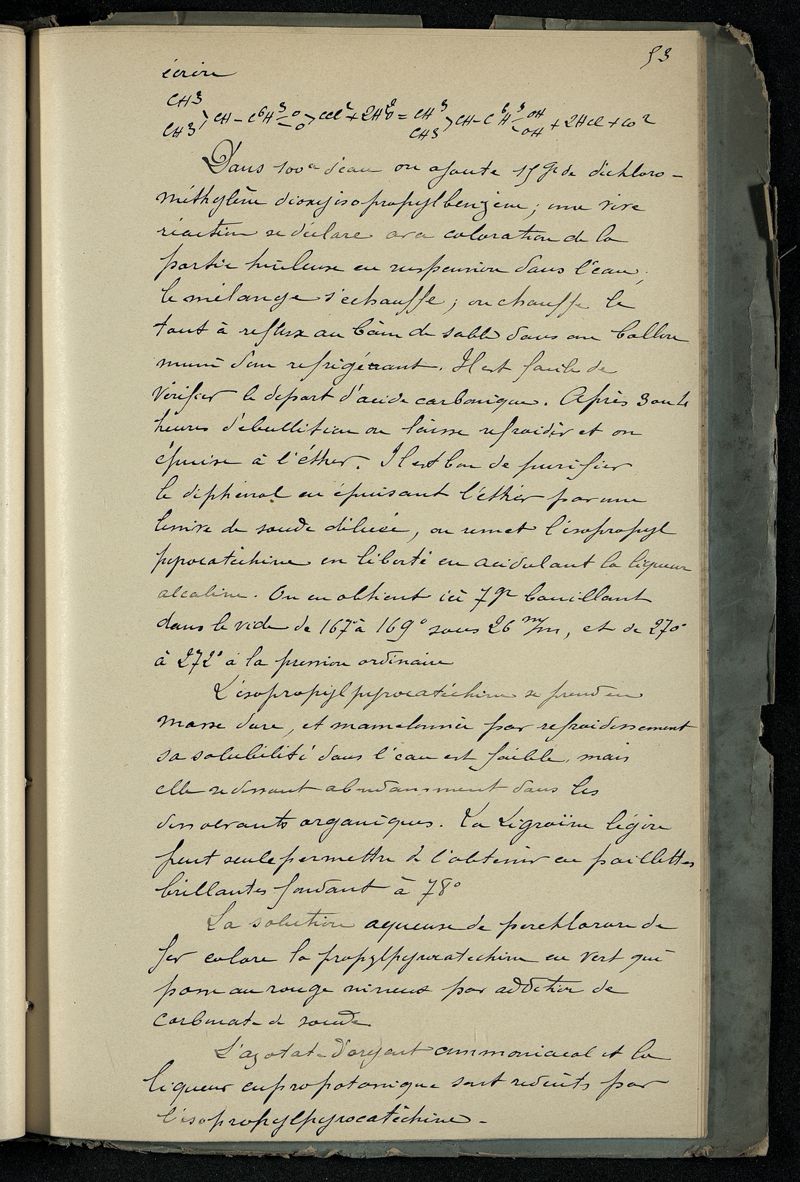 53
écrire
CH3
CH3 > CH - C6H3 =O O> CCl2 + 2H2O = CH3 CH3 > CH - C6H3 -OH -OH + 2HCl + CO2
Dans 100cc d'eau on ajoute 15gr de dichloro-
méthylène dioxyisopropylbenzène; une vive
réaction se déclare avec coloration de la
partie huileuse en suspension dans l'eau,
le mélange s'echauffe; on chauffe le
tout à reflux au bain de sable dans un ballon
muni d'un refrigérant. Il est facile de
vérifier le depart d'acide carbonique. Après 3 ou 4
heures d'ébullition on laisse refroidir et on
épuise à l'éther. Il est bon de purifier
le diphénol en épuisant l'éther par une
lessive de soude diluée, on remet l'isopropyl
pyrocatéchine en liberté en acidulant la liqueur
alcaline. On en obtient ici 7gr bouillant
dans le vide de 167° à 169° sous 26 m/m, et de 270°
à 272° à la pression ordinaire
L'isopropylpyrocatéchine se prend en
masse dure, et mamelonnée par refroidissement
sa solubilité dans l'eau est faible, mais
elle se dissout abondamment dans les
dissolvants organiques. La Ligroïne légère
peut seule permettre de l'obtenir en paillettes
brillantes fondant à 78°
La solution aqueuse de perchlorure de
fer colore la propylpyrocatechine en vert qui
passe au rouge vineux par addition de
carbonate de soude
L'azotate d'argent ammoniacal et la
liqueur cupropotassique sont reduits par
l'isopropylpyrocatéchine -